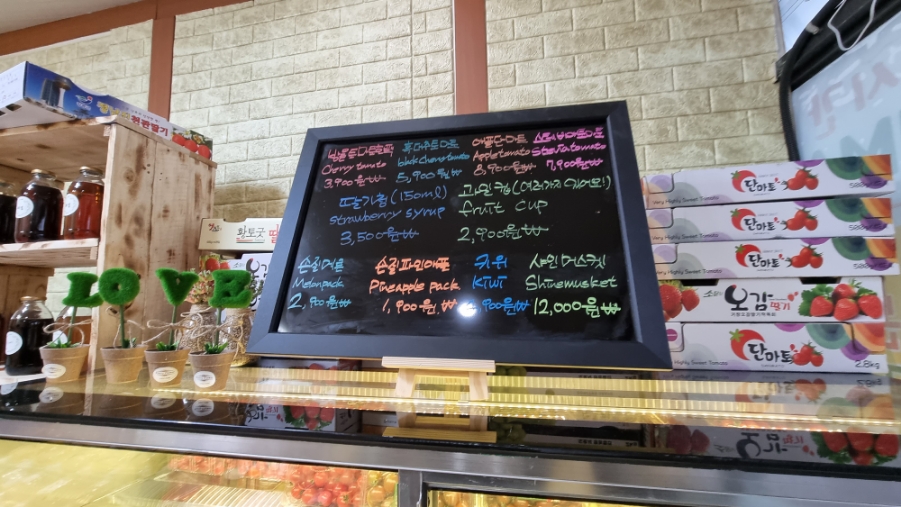 방울토마토
Cherry tomato
3,900원₩
흑대추토마토
black cherry tomato
5,900원₩
애플토마토
Apple tomato
8,900원₩
스테비아토마토
Stevia tomato
7,900원₩
딸기청(150ml)
strawberry syrup
3,500원₩
과일컵(여러가지있어요!)
fruit cup
2,900원₩
손질메론
Melon pack
2,900원₩
손질파인애플
Pineapple pack
1,900원₩
키위
Kiwi
900원₩
샤인머스켓
Shinemusket
12,000원₩
LOVE
황토굿
단마토
Very Highly Sweet Tomato
단마토
Very Highly Sweet Tomato
단마토
오감 딸기
단마토
Very Highly Sweet Tomato
2.8kg